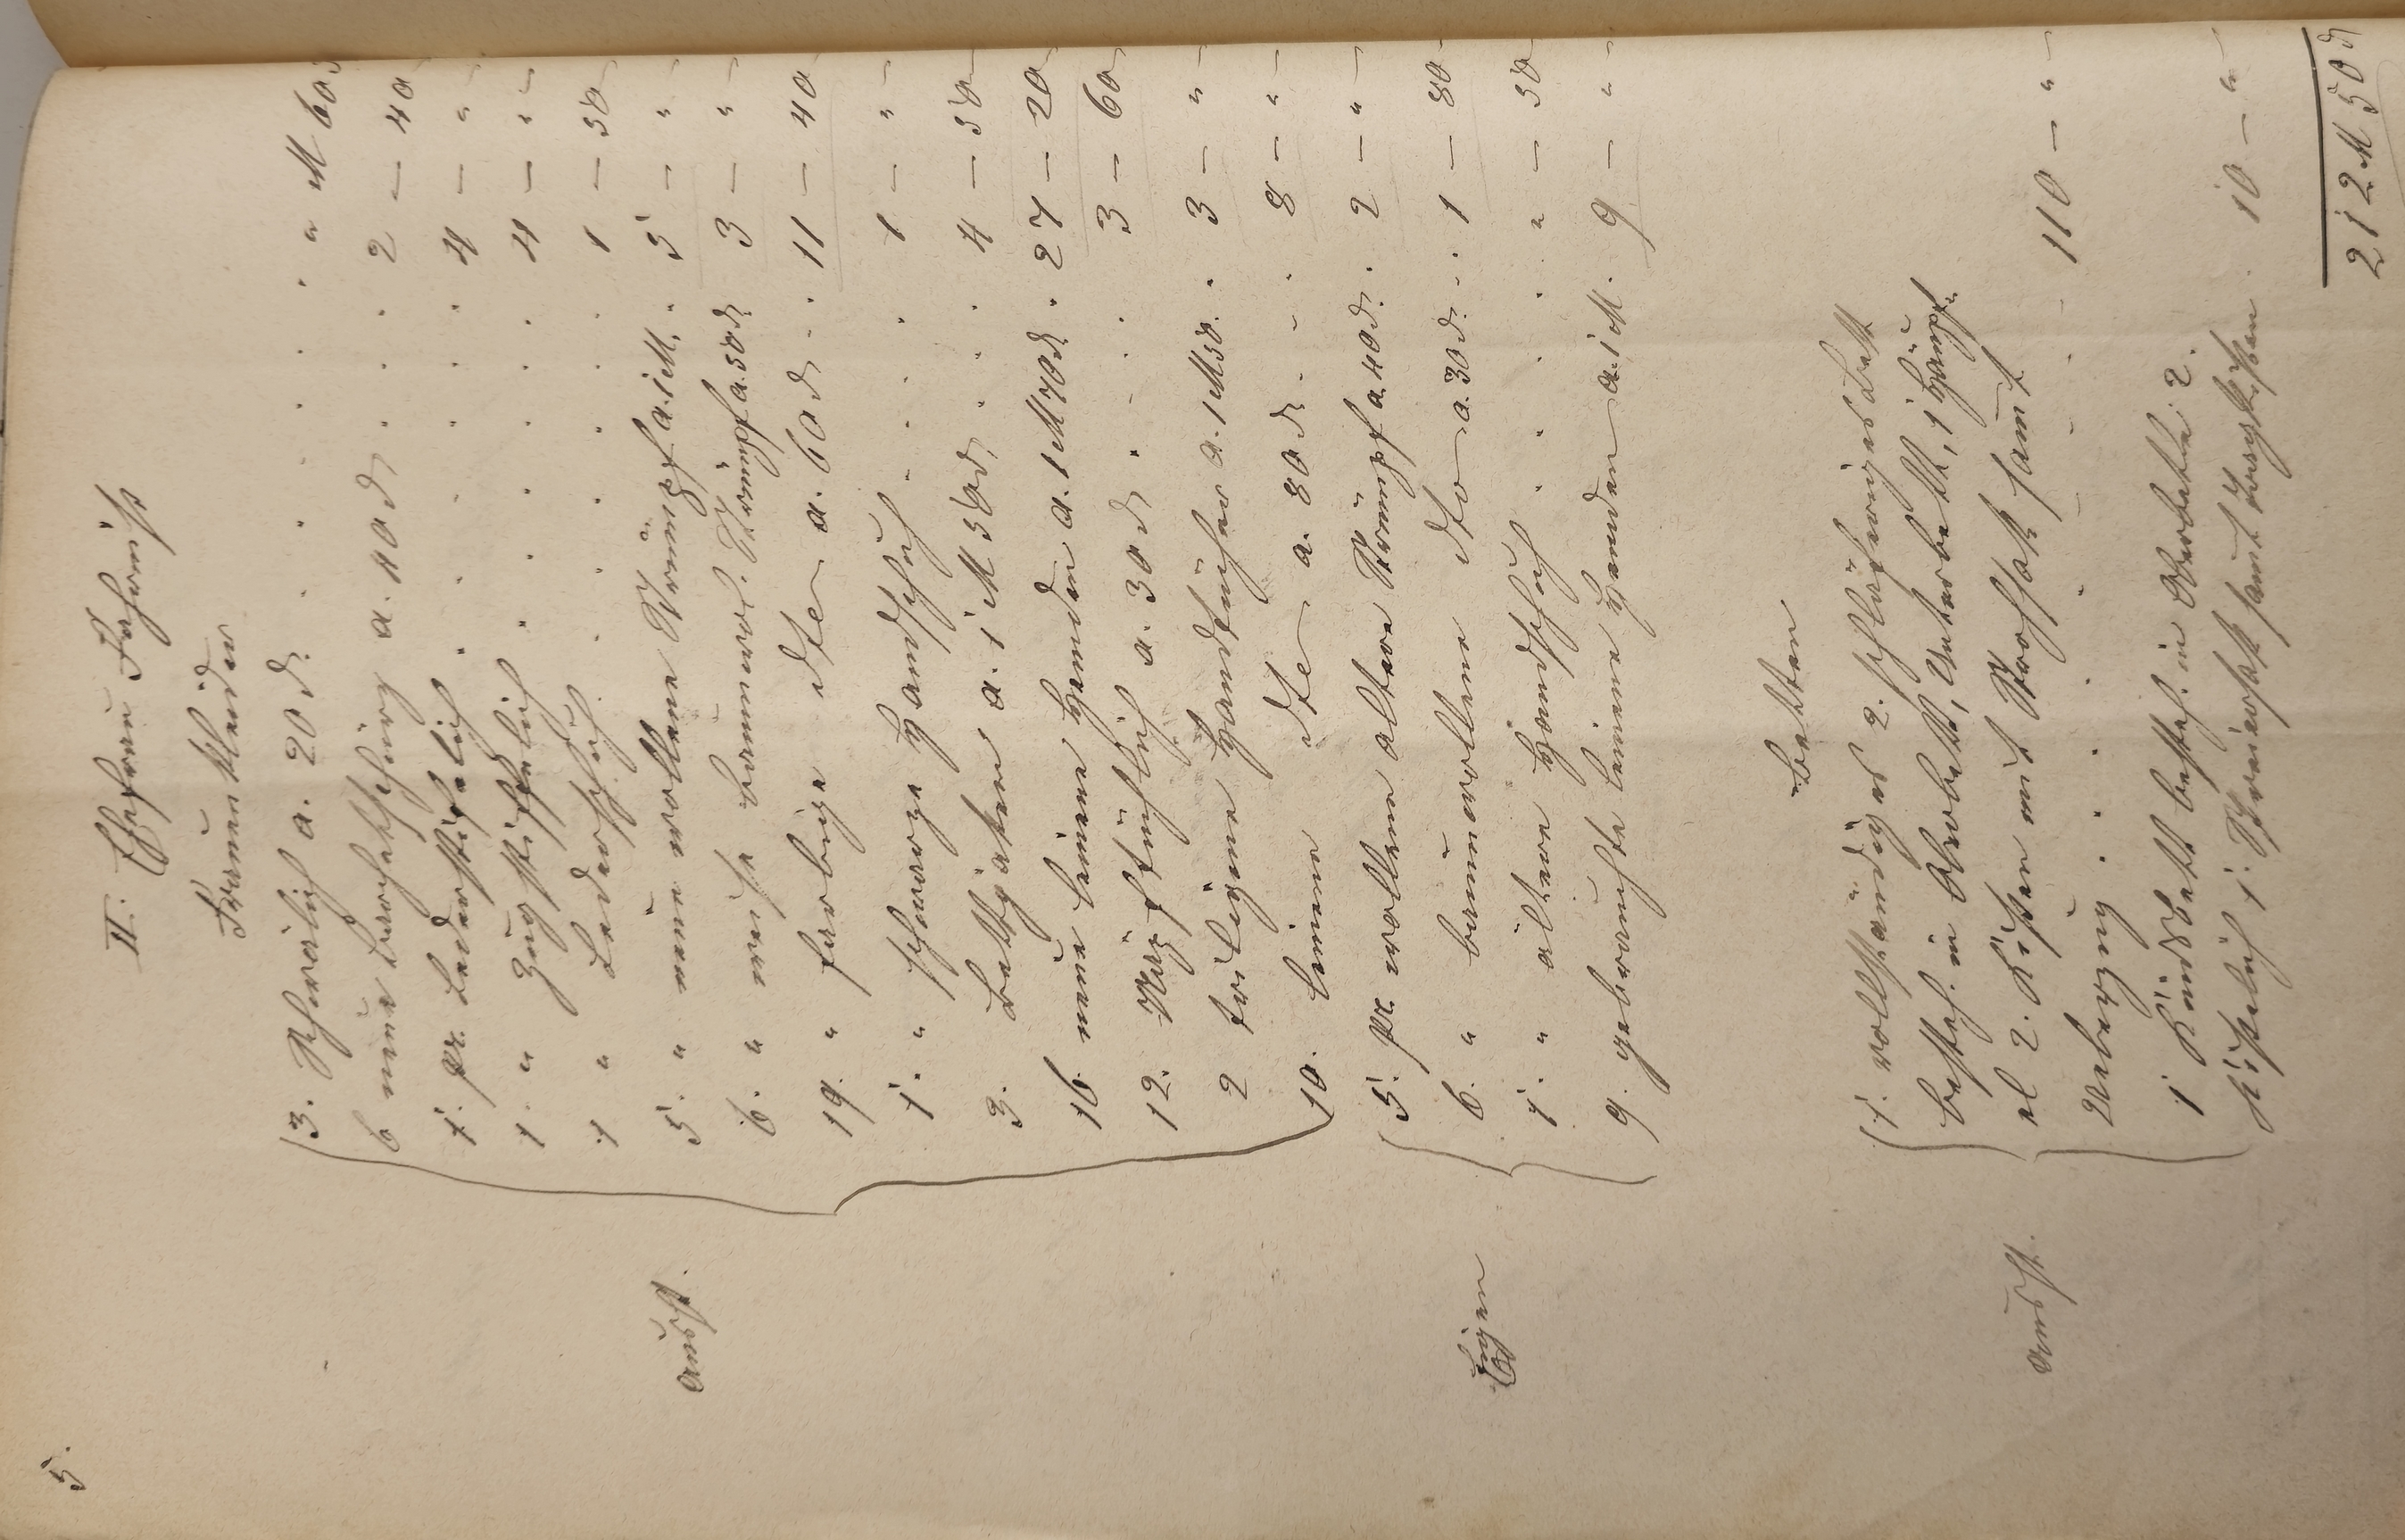 5.
II. Ehefrau Fahrniß
Frauenkleider
3. Schurzlich a. 20 d. . . . . . " M 60 d
6 neue Barchetschürz a. 40 d . . . 2 — 40
1. pr. Lederstiefelich . . . . 4 — "
1. " Zeugstiffelich . . . . 4 — "
1 " Lederschuh . . . . 1 — 50
5. " neue wollene Strümpf a. 1 M. . 5 — "
6. " weiße baumwol. Strümpf a. 50 d. 3 — "
19. " farbige dto a. 60 d . . 11 — 40
1. " schwarze Handschuh . . . . 1 — "
3. Bettjaken a. 1 M 50 d . . . 4 — 50
16. neue leinene Hemden a. 1 M 70 d. . 27 — 20
12. a. 30 d . . . . 3 — 60
2 Handtücher a. 1 M 50. . 3 — "
10. leinene dto a. 80 d. . . 8 — "
ausst.
5. pr. wollene altere Strümpf a. 40 d. . 2 — "
6. " baumwollene dto a. 30 d. . . 1 — 80
1. " altere Handschuh . . . . " — 50
9. gebrauchte leinene Hemden a. 1 M. . 9 — "
Eigen
Betten
1. vollständiges 2. schläferiges Bett
besteh. in Oberbett, Unterbett, 1 Haupf.
et 2. Kißen mit Strohsak samt
Ueberzug . . . . . . . 110 — "
1 Kindsbett besteh. in Oberbett 2.
Kißelich 1. Spreiersak samt Bettkasten . 10 — "
ausst.
212 M 50 d